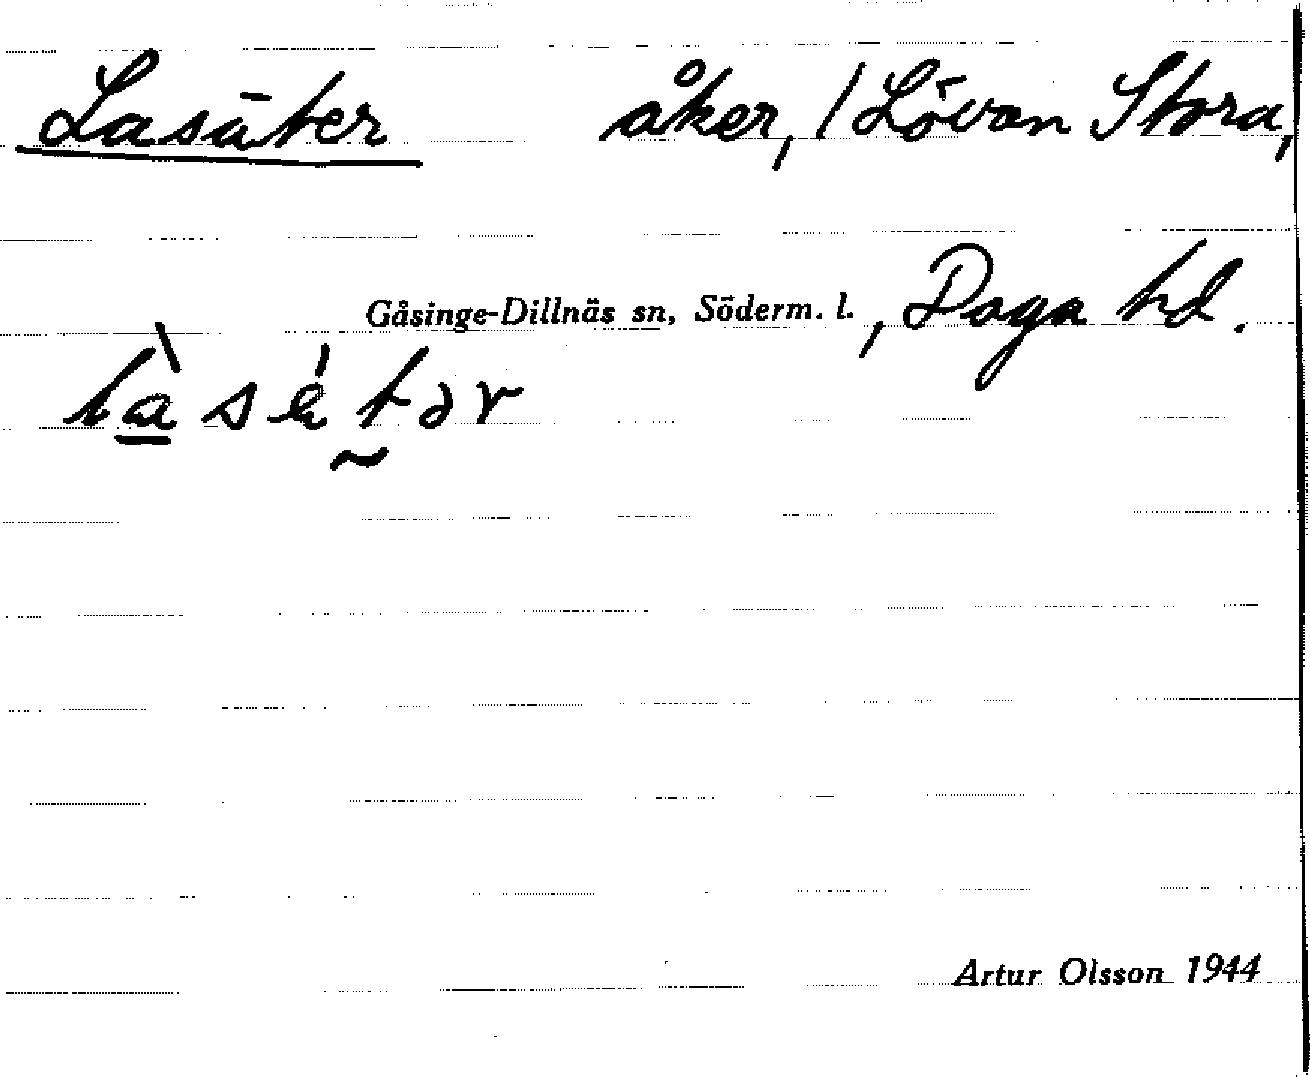 Lasäter åker, / Lövan Stora,
Gåsinge-Dillnäs sn, Söderm. l., Daga hd.
Artur Olsson 1944